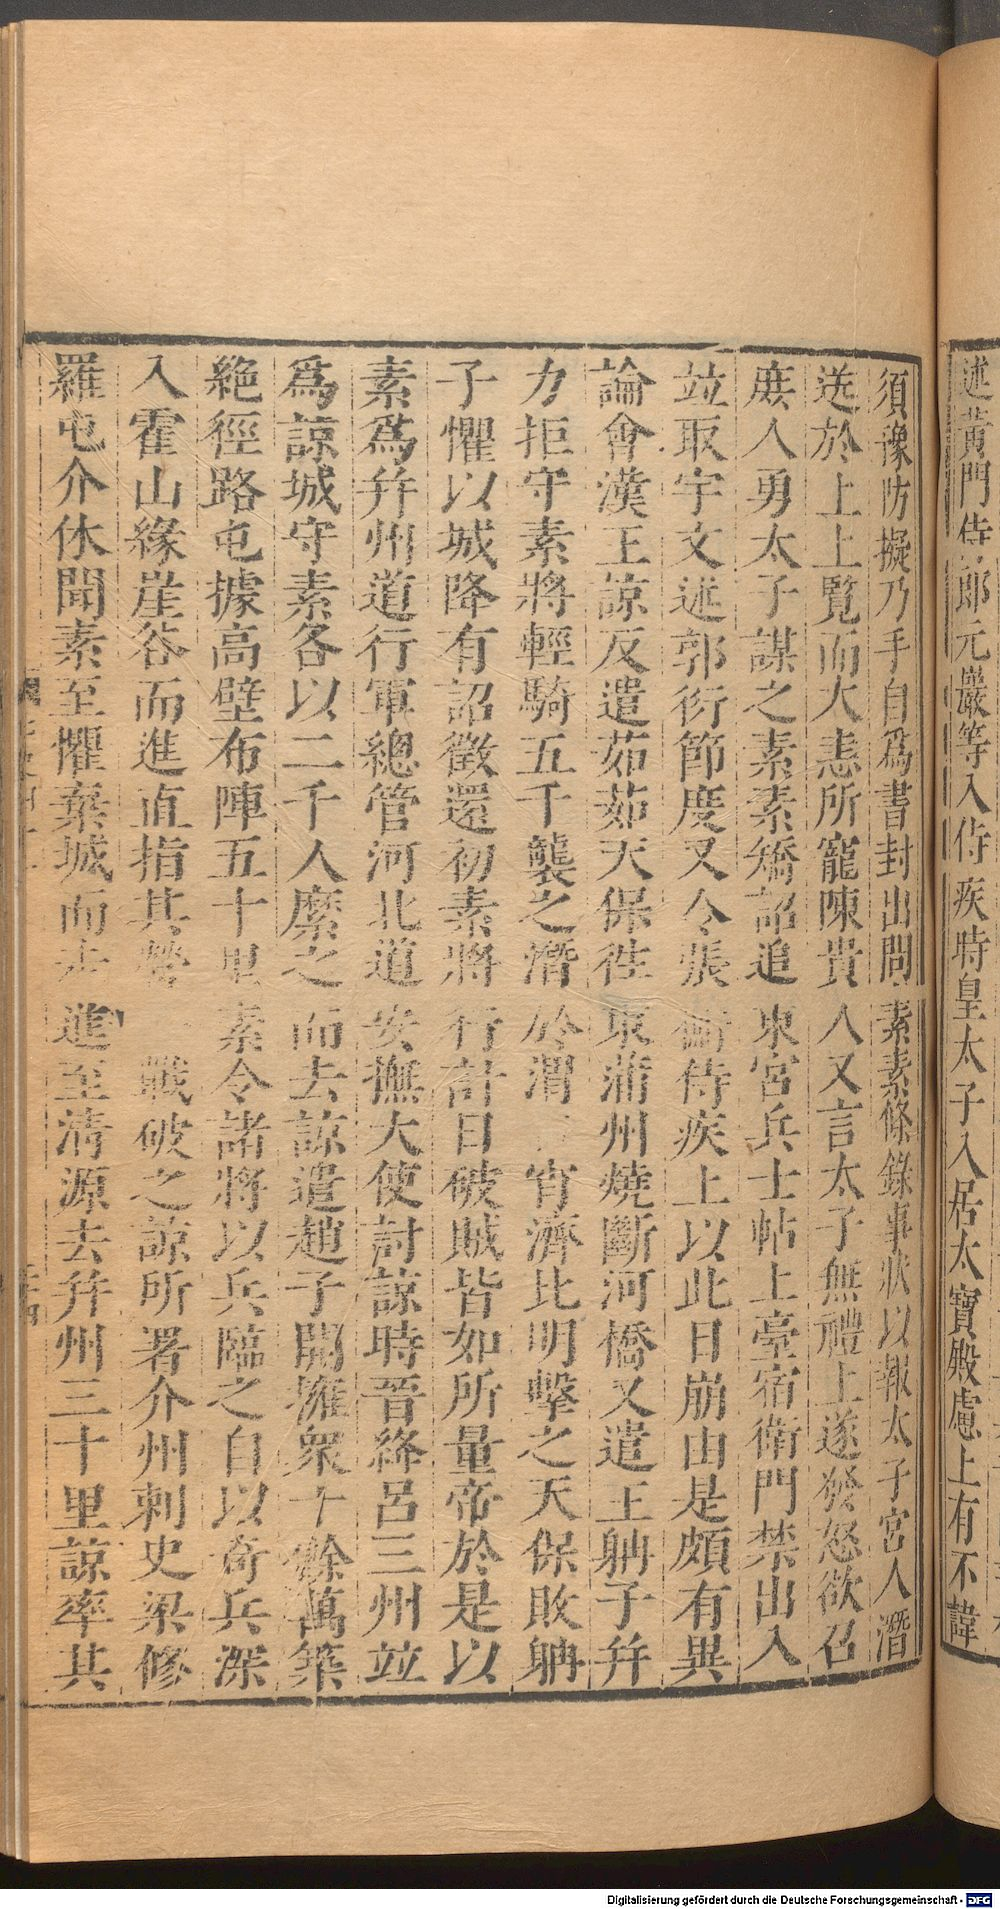 述黃門侍郎元巖等入侍疾時皇太子入居太寶殿慮上有不諱
須豫防擬乃手自爲書封出問素素條錄事狀以報太子宮人潛
送於上上覽而大恚所寵陳貴人又言太子無禮上遂發怒欲召
庶人勇太子謀之素素矯詔追東宮兵士帖上臺宿衛門禁出入
竝取宇文述郭衍節度又令張衡侍疾上以此日崩由是頗有異
論會漢王諒反遣茹茹天保往東蒲州燒斷河橋又遣王聃子幷
力拒守素將輕騎五千襲之潛於渭 宵濟比明擊之天保敗聃
子懼以城降有詔徵還初素將行計日破賊皆如所量帝於是以
素爲幷州道行軍總管河北道安撫大使討諒時晉絳呂三州竝
爲諒城守素各以二千人縻之而去諒遣趙子開擁衆十餘萬築
絕徑路屯據高壁布陣五十里素令諸將以兵臨之自以奇兵深
入霍山緣崖谷而進直指其營一戰破之諒所署介州刺史梁修
羅屯介休聞素至懼棄城而去進至清源去幷州三十里諒率其
Digitalisierung gefördert durch die Deutsche Forschungsgemeinschaft - DFG